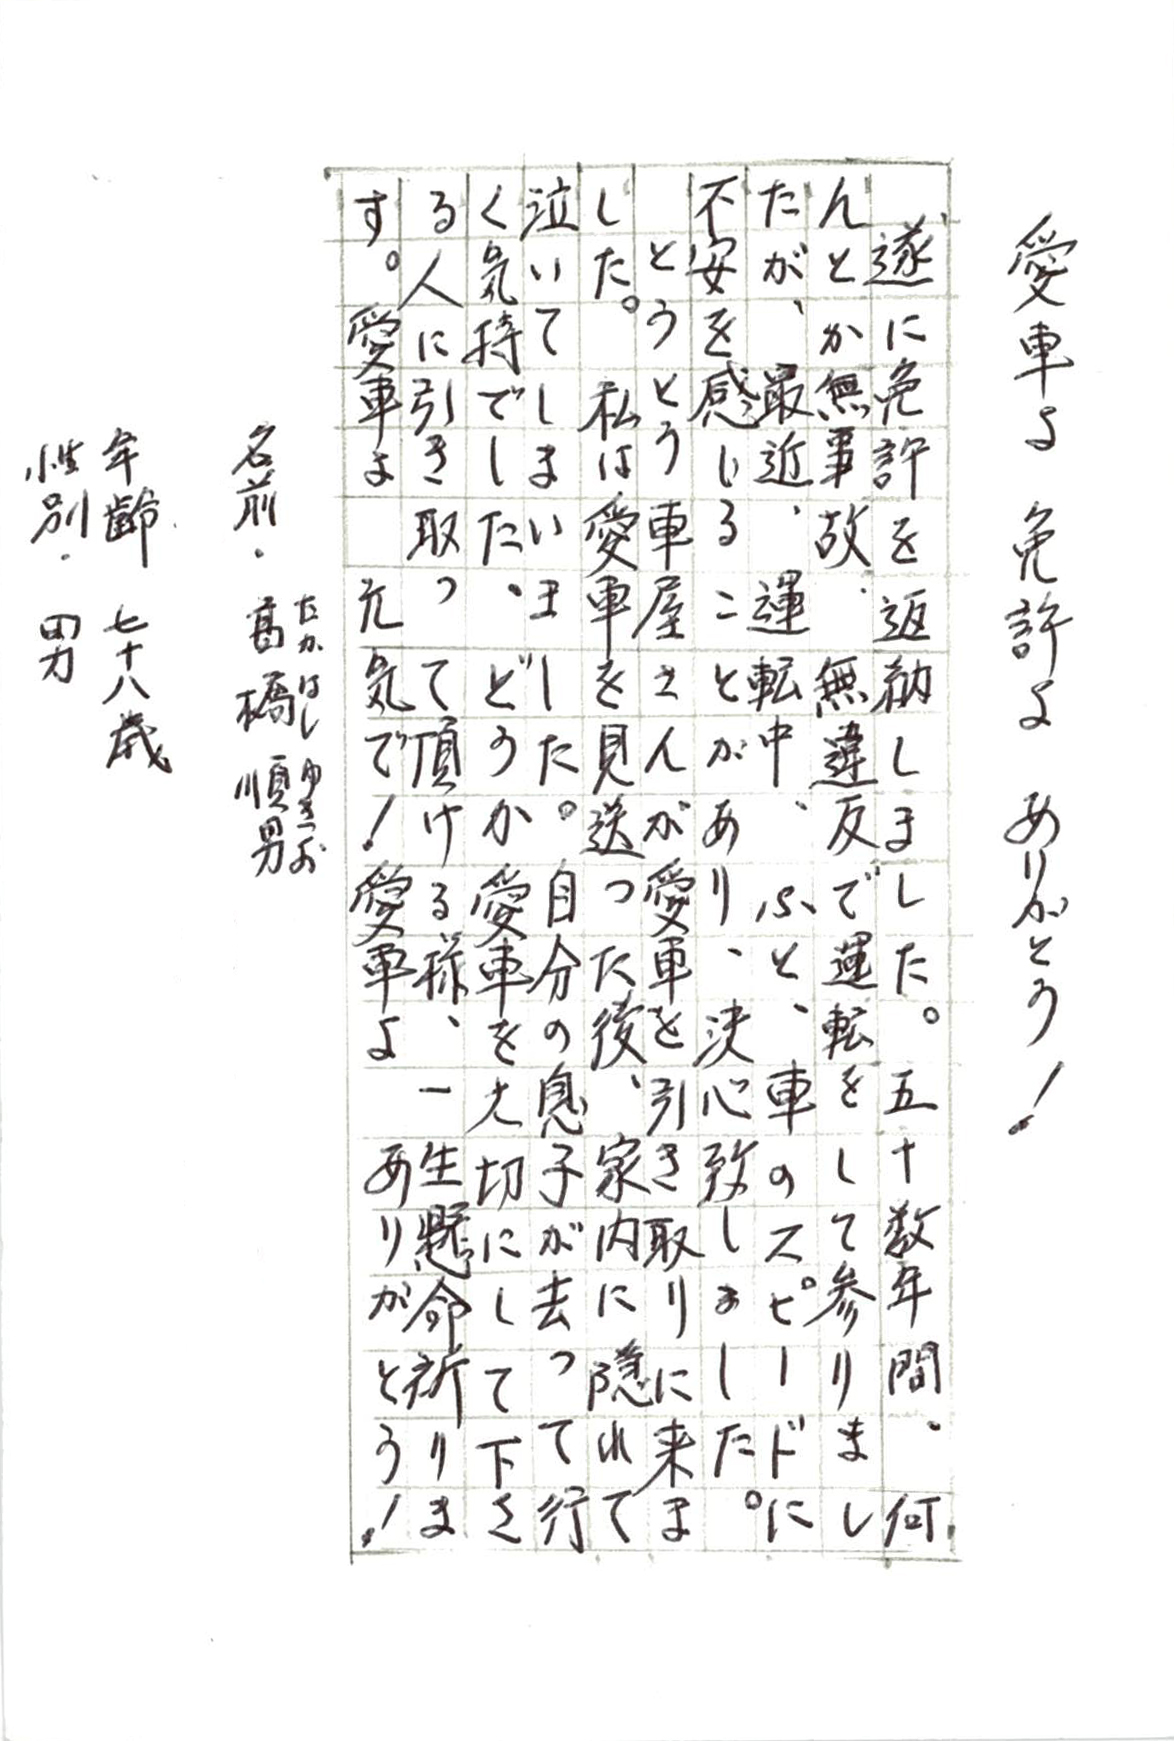 愛車よ 免許よ ありがとう!
遂に免許を返納しました。五十数年間、何
んとか無事故、無違反で運転をして参りまし
たが、最近、運転中、ふと、車のスピードに
不安を感じることがあり、決心致しました。
とうとう車屋さんが愛車を引き取りに来ま
した。私は愛車を見送った後、家内に隠れて
泣いてしまいました。自分の息子が去って行
く気持でした、どうか愛車を大切にして下さ
る人に引き取って頂ける様、一生懸命祈りま
す。愛車よ 元気で!愛車よ ありがとう!
たかはし ゆきお
名前・高橋 順男
年齢 七十八歳
性別・男